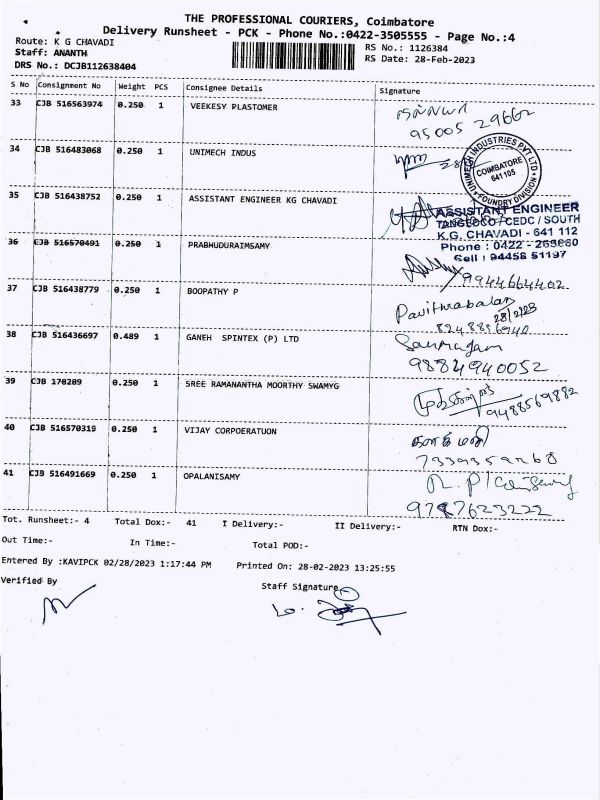 THE PROFESSIONAL COURIERS, Coimbatore
Delivery Runsheet - PCK - Phone No.:0422-3505555 - Page No.:4
Route: K G CHAVADI
RS No.: 1126384
Staff: ANANTH
RS Date: 28-Feb-2023
DRS No.: DCJB112638404
S No Consignment No Weight PCS Consignee Details Signature
33 CJB 516563974 0.250 1 VEEKESY PLASTOMER
95005 29662
34 CJB 516483068 0.250 1 UNIMECH INDUS
UNIMECH INDUSTRIES PVT LTD
COIMBATORE
641 105
FOUNDRY DIVISION
35 CJB 516438752 0.250 1 ASSISTANT ENGINEER KG CHAVADI
ASSISTANT ENGINEER
TANGEDCO / CEDC / SOUTH
K.G. CHAVADI - 641 112
Phone : 0422 - 263860
Cell : 94458 51197
36 CJB 516570491 0.250 1 PRABHUDURAIMSAMY
9944664402
37 CJB 516438779 0.250 1 BOOPATHY P
Pavithrabalan
28/2/23
8248856940
38 CJB 516436697 0.489 1 GANEH SPINTEX (P) LTD
9884940052
39 CJB 170289 0.250 1 SREE RAMANANTHA MOORTHY SWAMYG
9488569882
40 CJB 516570319 0.250 1 VIJAY CORPOERATUON
கனகமணி
41 CJB 516491669 0.250 1 OPALANISAMY
9787623222
Tot. Runsheet:- 4 Total Dox:- 41 I Delivery:- II Delivery:- RTN Dox:-
Out Time:- In Time:- Total POD:-
Entered By :KAVIPCK 02/28/2023 1:17:44 PM Printed On: 28-02-2023 13:25:55
Verified By Staff Signature